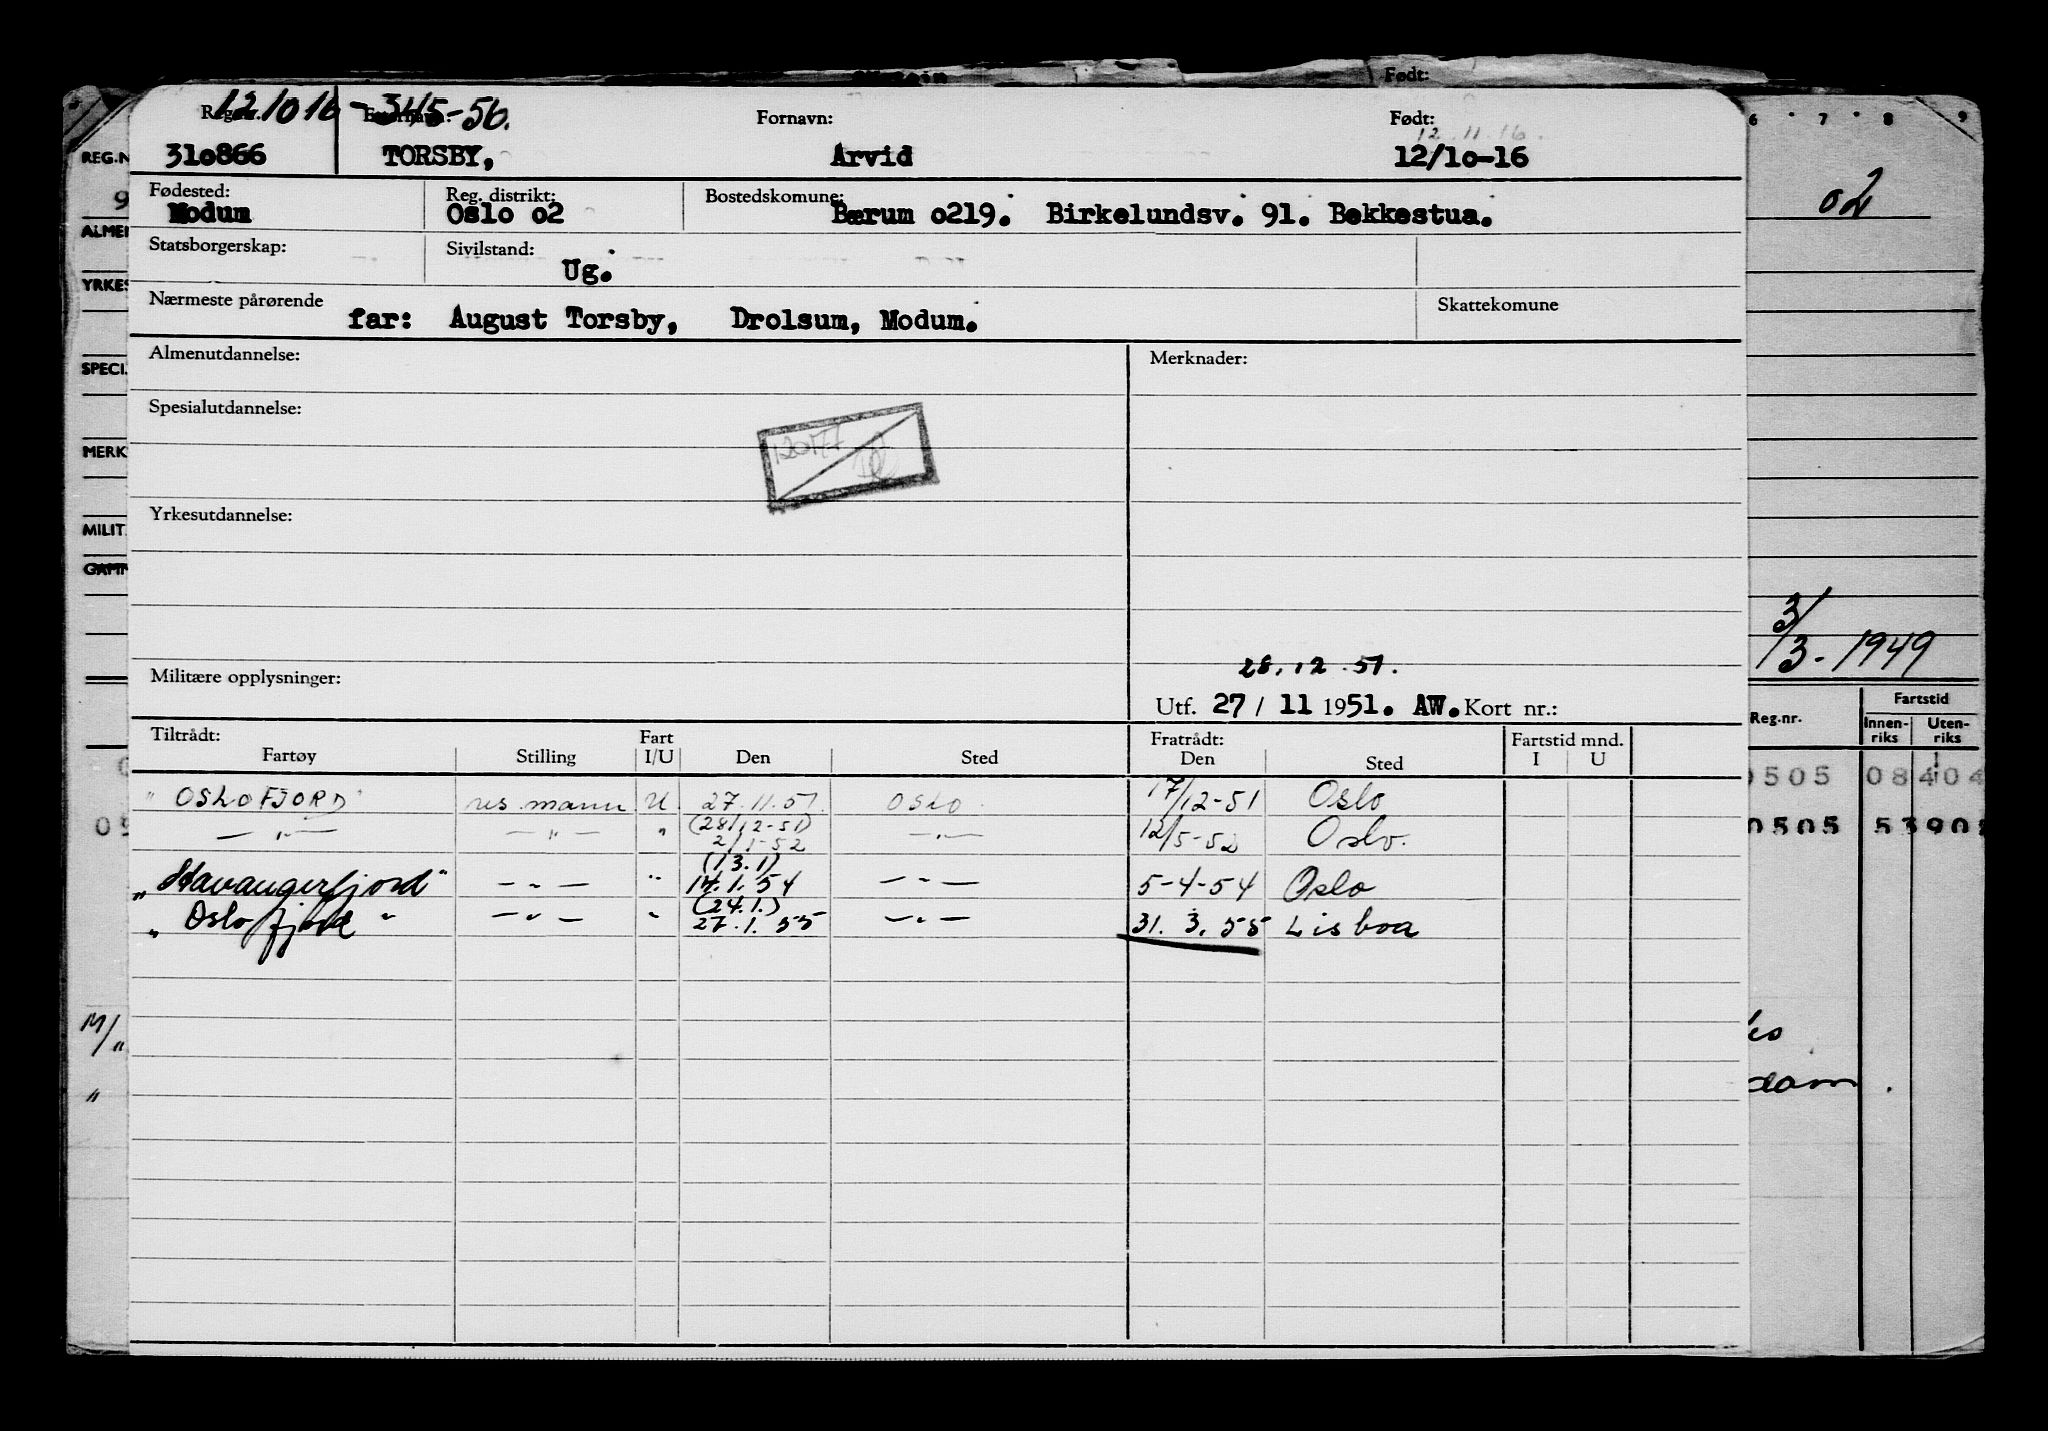 Født:
Reg.nr. 121016 - Etternavn: 34/5-56. Fornavn: Født:
12.11.16.
310866 TORSBY, Arvid 12/10-16
Fødested: Reg. distrikt: Bostedskomune:
Modum Oslo o2 Bærum o219. Birkelundsv. 91. Bekkestua.
Statsborgerskap: Sivilstand:
Ug.
Nærmeste pårørende Skattekomune
far: August Torsby, Drolsum, Modum.
Almenutdannelse: Merknader:
Spesialutdannelse:
120177
Yrkesutdannelse:
28.12.51.
Militære opplysninger:
Utf. 27/ 11 1951. AW. Kort nr.:
Tiltrådt: Fart Fratrådt: Fartstid mnd.
Fartøy Stilling I/U Den Sted Den Sted I U
" OSLOFJORD " res. mann U 27.11.51. OSLO. 17/12-51 Oslo
— " — — " — " (28/12-51) — " — 12/5-52 Oslo.
2/1-52
(13.1)
„ Stavangerfjord " — " — " 14.1.54 — " — 5-4-54 Oslo
(24.1.)
„ Oslofjord " — " — " 27.1.55 — " — 31.3.55 Lisboa
REG.N
9
ALMEN
YRKES
SPECI
MERK
MILIT
GAMM
M/„
"
6 7 8 9
o2
3/3-1949
Reg.nr. Fartstid
Innen-riks Uten-riks
0505 08404
0505 5390
dam